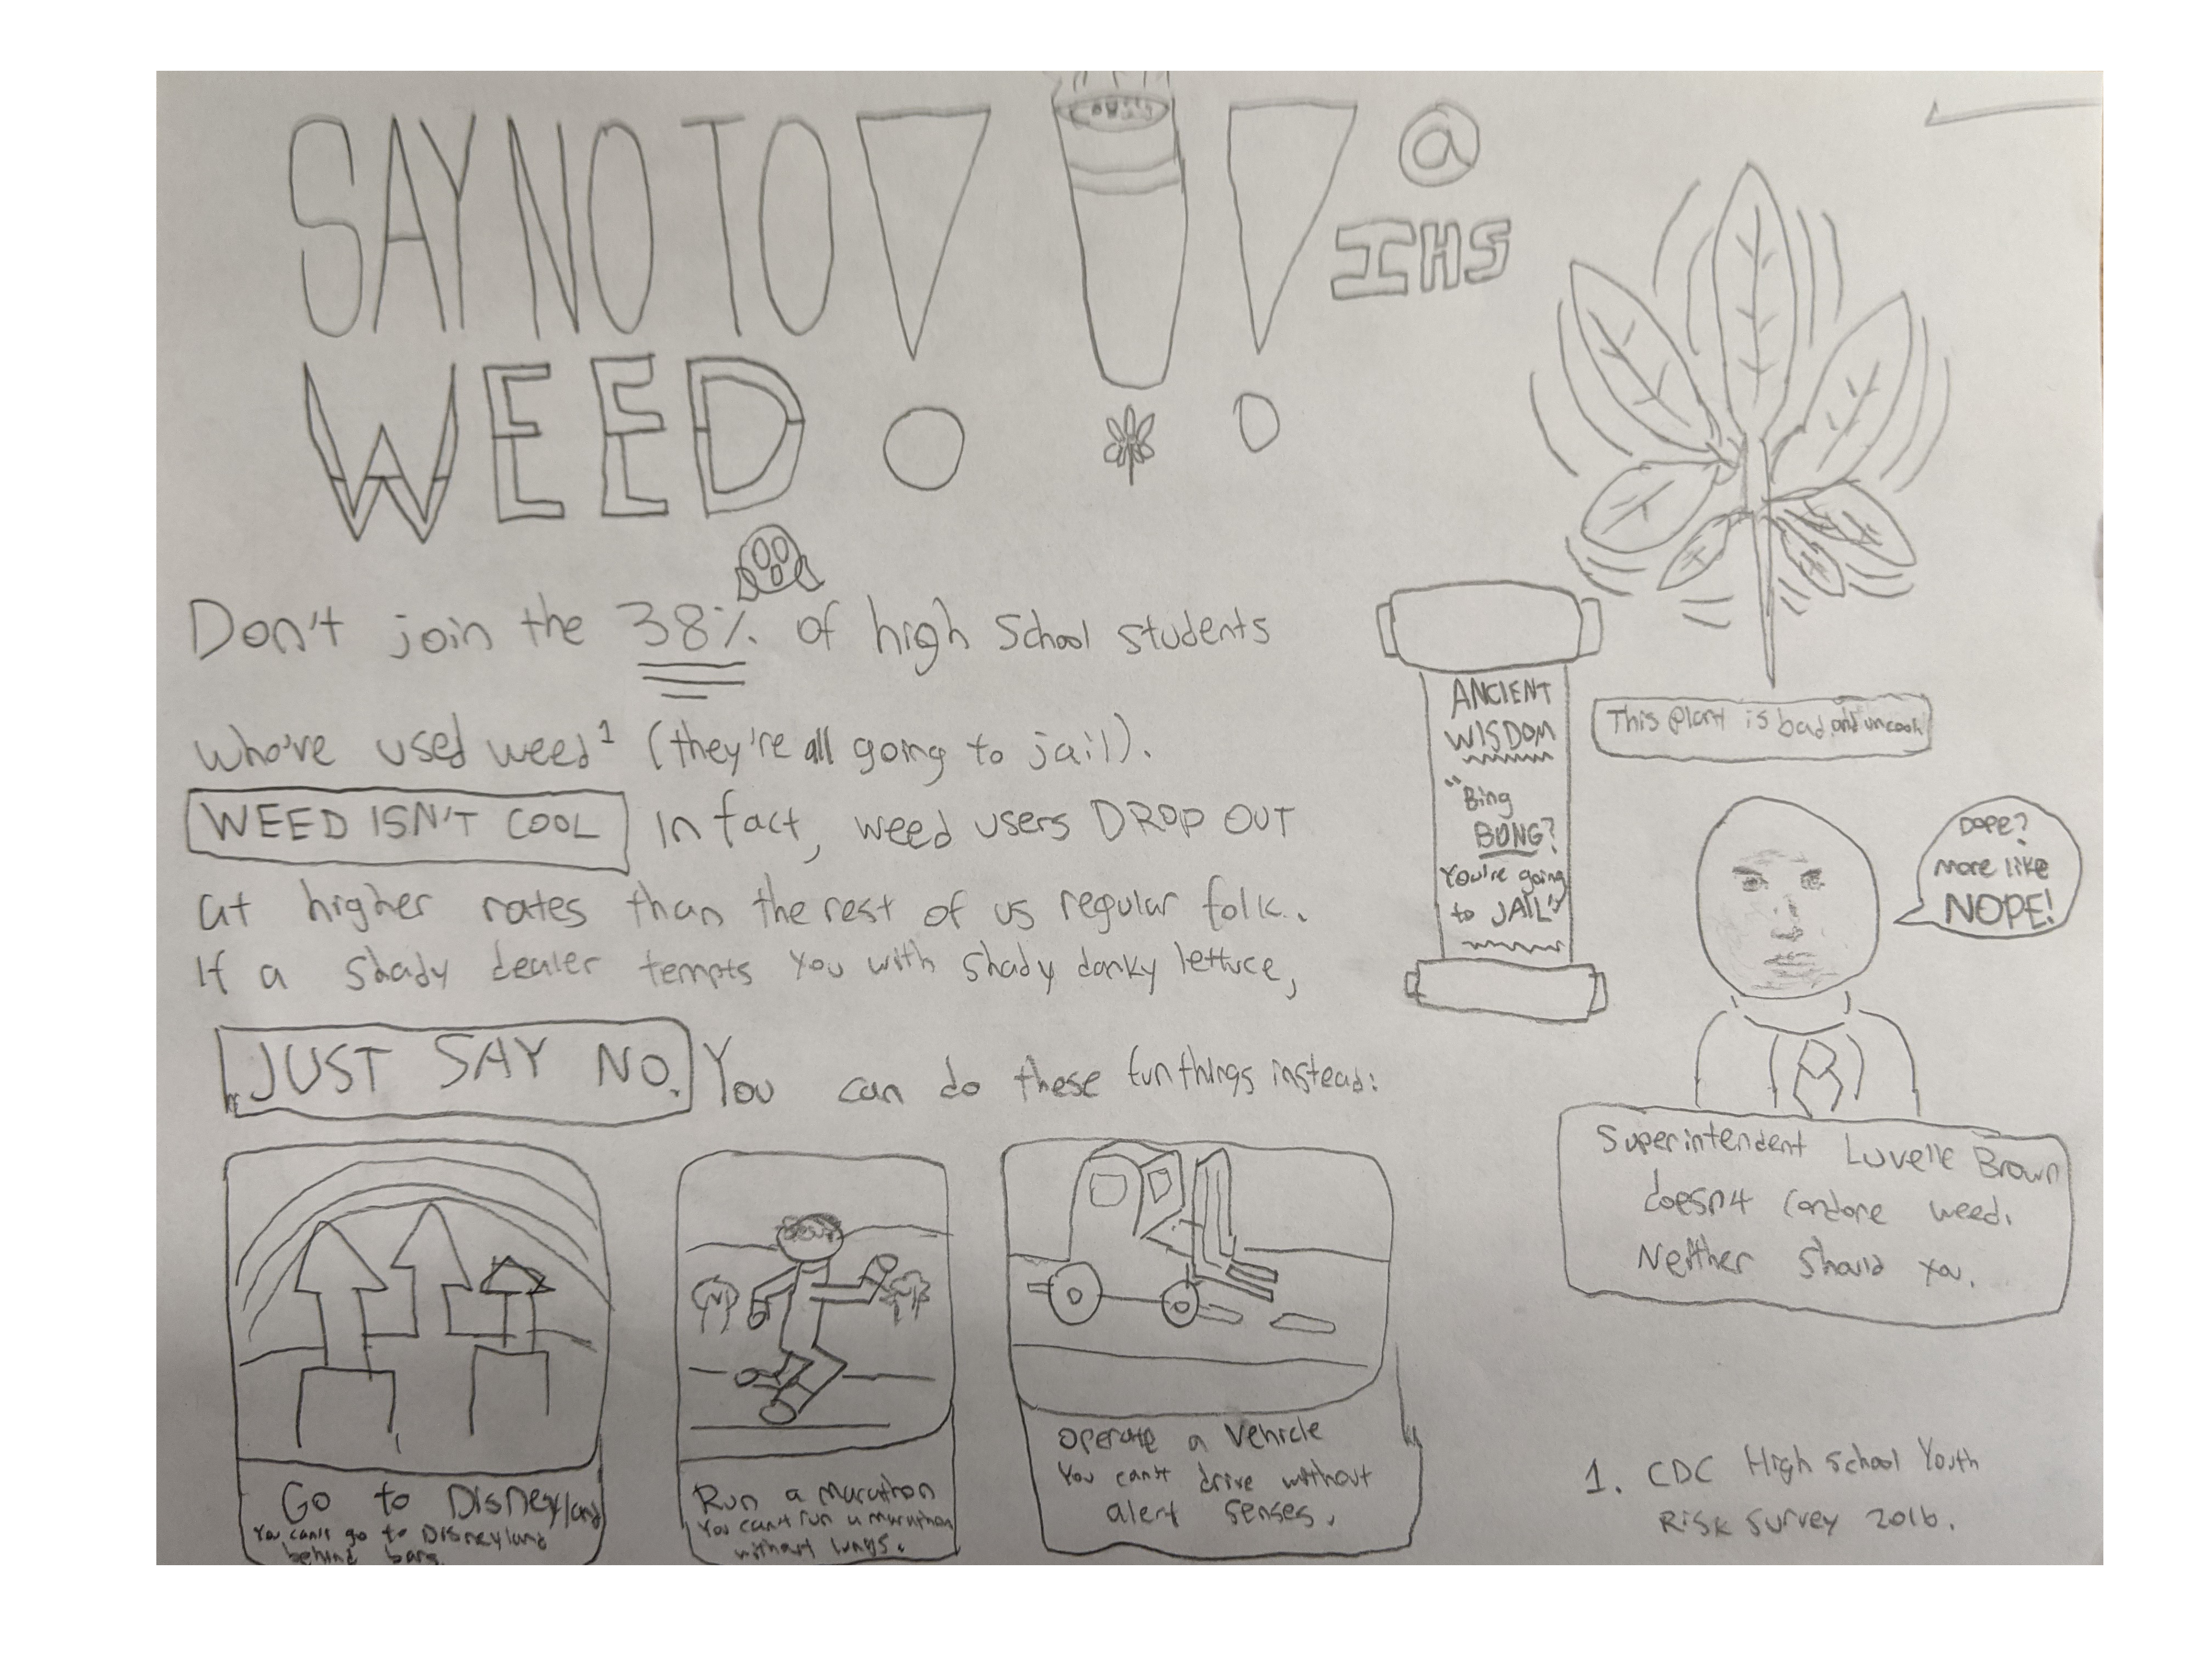 SAY NO TO
WEED
!!!
@
IHS
Don't join the 38% of high School students
who've used weed¹ (they're all going to jail).
WEED ISN'T COOL In fact, weed users DROP OUT
at higher rates than the rest of us regular folk.
If a shady dealer tempts you with shady danky lettuce,
JUST SAY NO. You can do these fun things instead:
Go to Disneyland
You can't go to Disneyland
behind bars.
Run a marathon
You can't run a marathon
without lungs.
Operate a vehicle
You can't drive without
alert senses.
ANCIENT
WISDOM
"Bing
BONG?
You're going
to JAIL"
This plant is bad and uncool
DOPE?
more like
NOPE!
Superintendent Luvelle Brown
doesn't condone weed.
Neither should you.
1. CDC High School Youth
Risk Survey 2016.